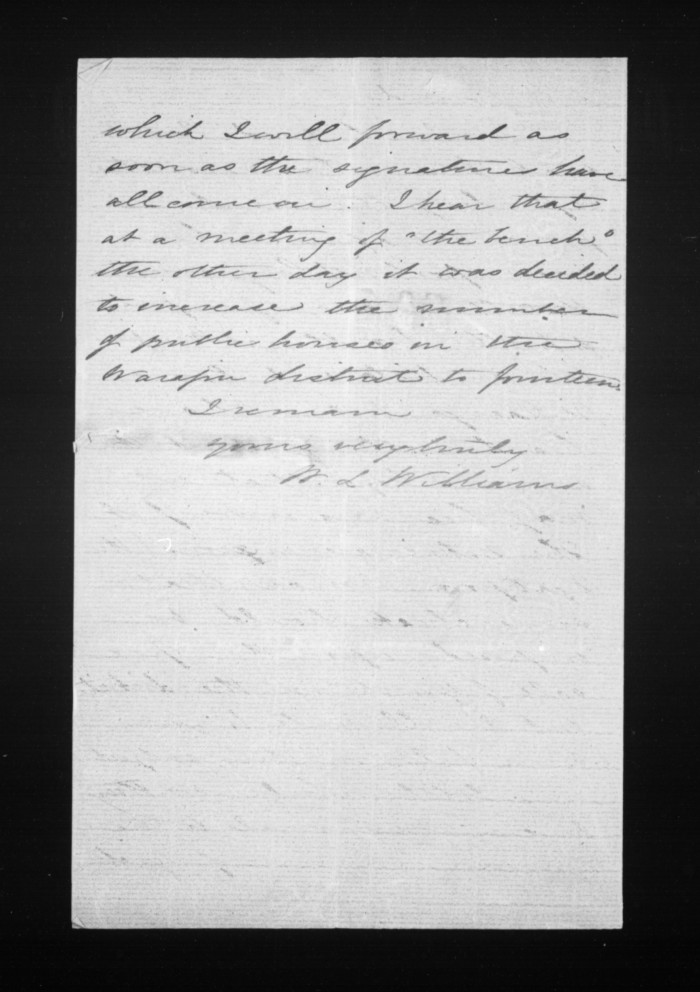 which I will forward as
soon as the signatures have
all come in. I hear that
at a meeting of "the bench"
the other day it was decided
to increase the number
of public houses in the
Wairapu district to fourteen.
I remain
yours very truly
W. L. Williams